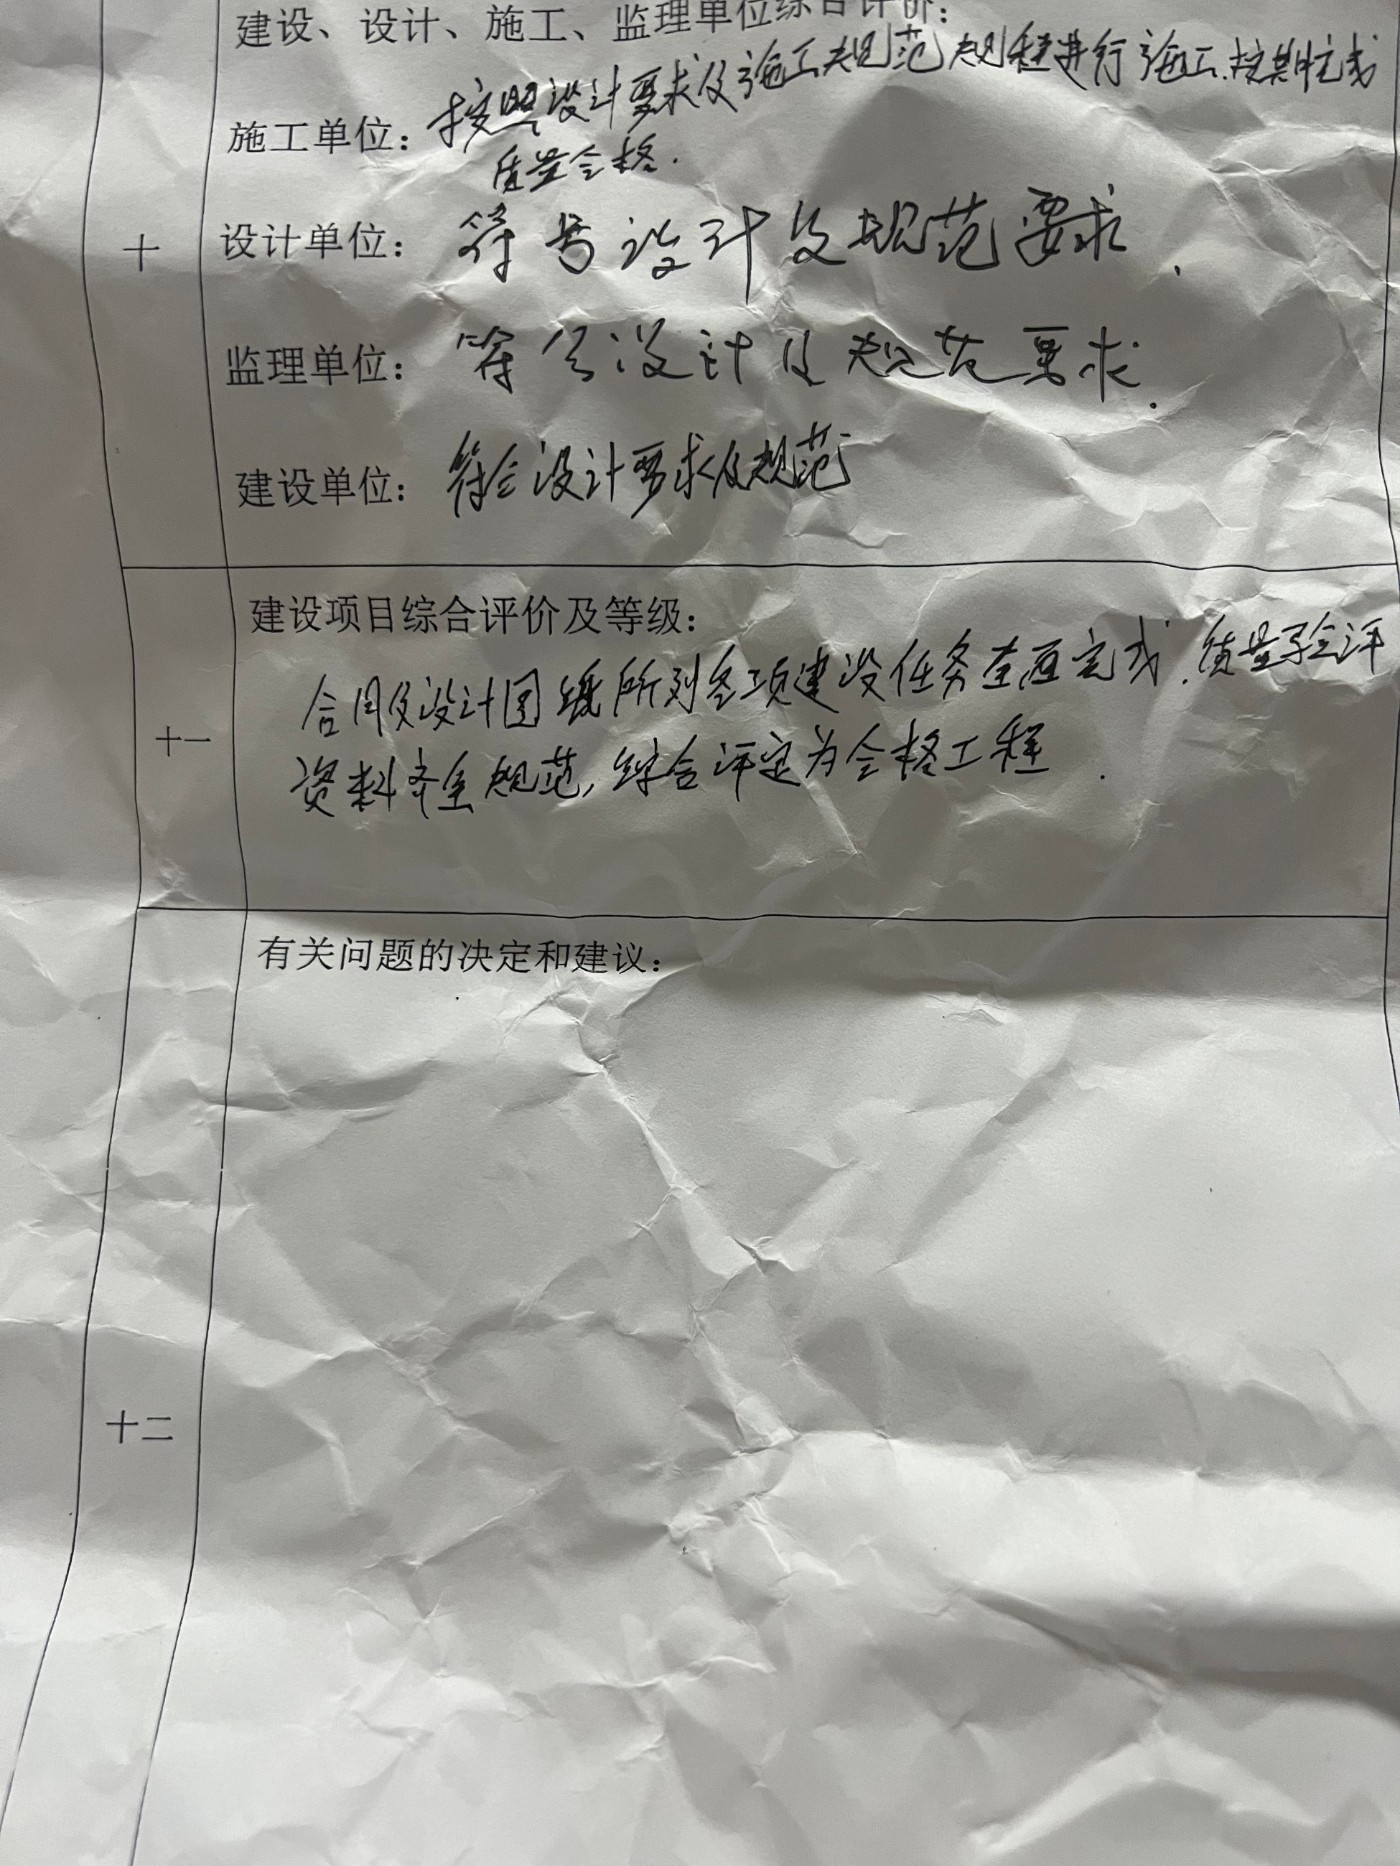 建设、设计、施工、监理单位综合评价：
施工单位：按照设计要求及施工规范规程进行施工.按期完成
质量合格.
十
设计单位：符合设计及规范要求.
监理单位：符合设计及规范要求.
建设单位：符合设计要求及规范
建设项目综合评价及等级：
合同及设计图纸所列各项建设任务全面完成.质量验评
十一
资料齐全规范,综合评定为合格工程.
有关问题的决定和建议：
十二